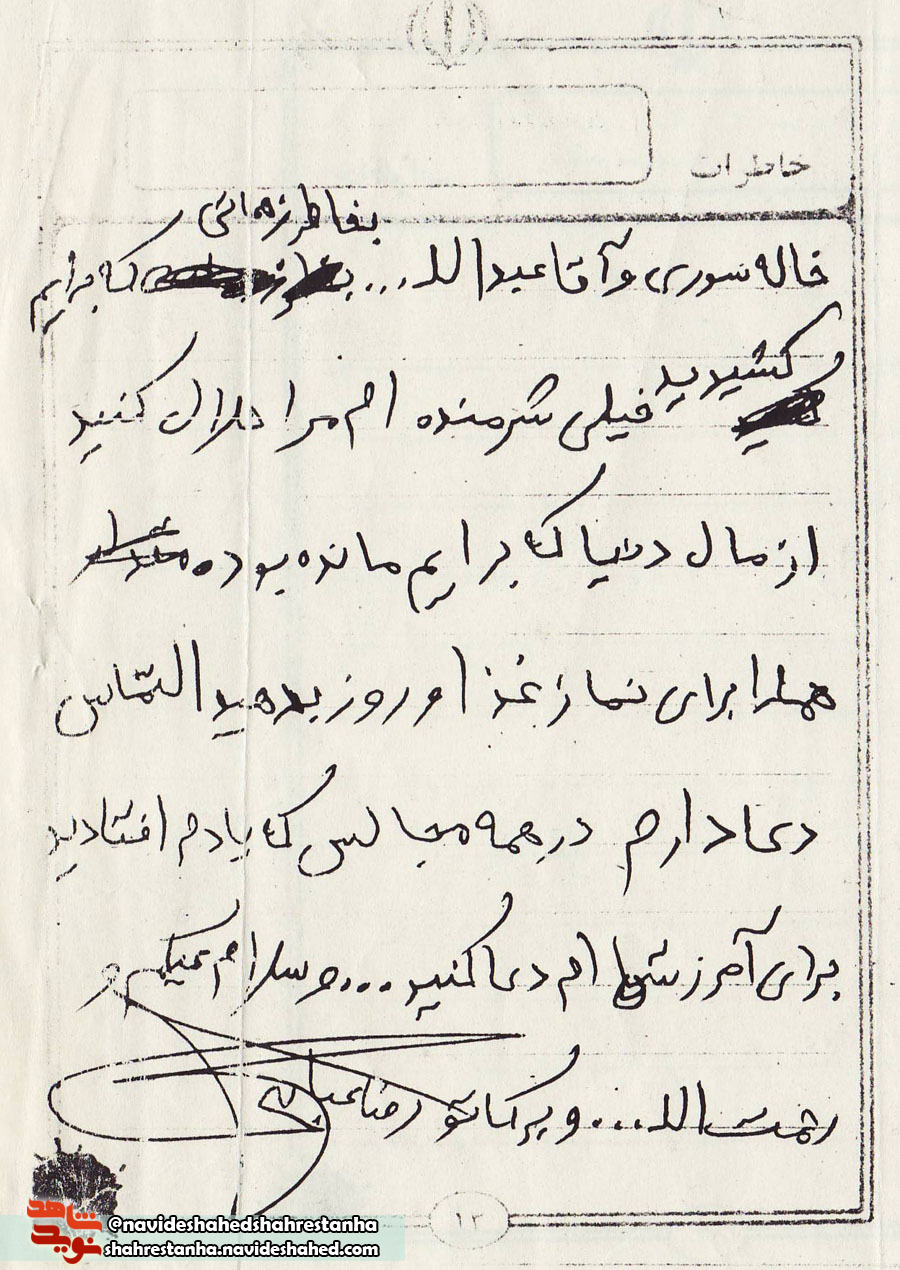 خاطرات
بخاطر زحماتی
خاله سوری و آقا عبدالله... که برایم
کشیدید
خیلی شرمنده ام مرا حلال کنید
از مال دنیا که برایم مانده بوده
همه را برای نماز غذا و روز بدهید التماس
دعا دارم در همه مجالس که یادم افتادید
برای آمرزش ام دعا کنید ... و سلام علیکم و
رحمت الله... و برکاتو رضا
۱۳
شاهد
نوید
@navideshahedshahrestanha
shahrestanha.navideshahed.com